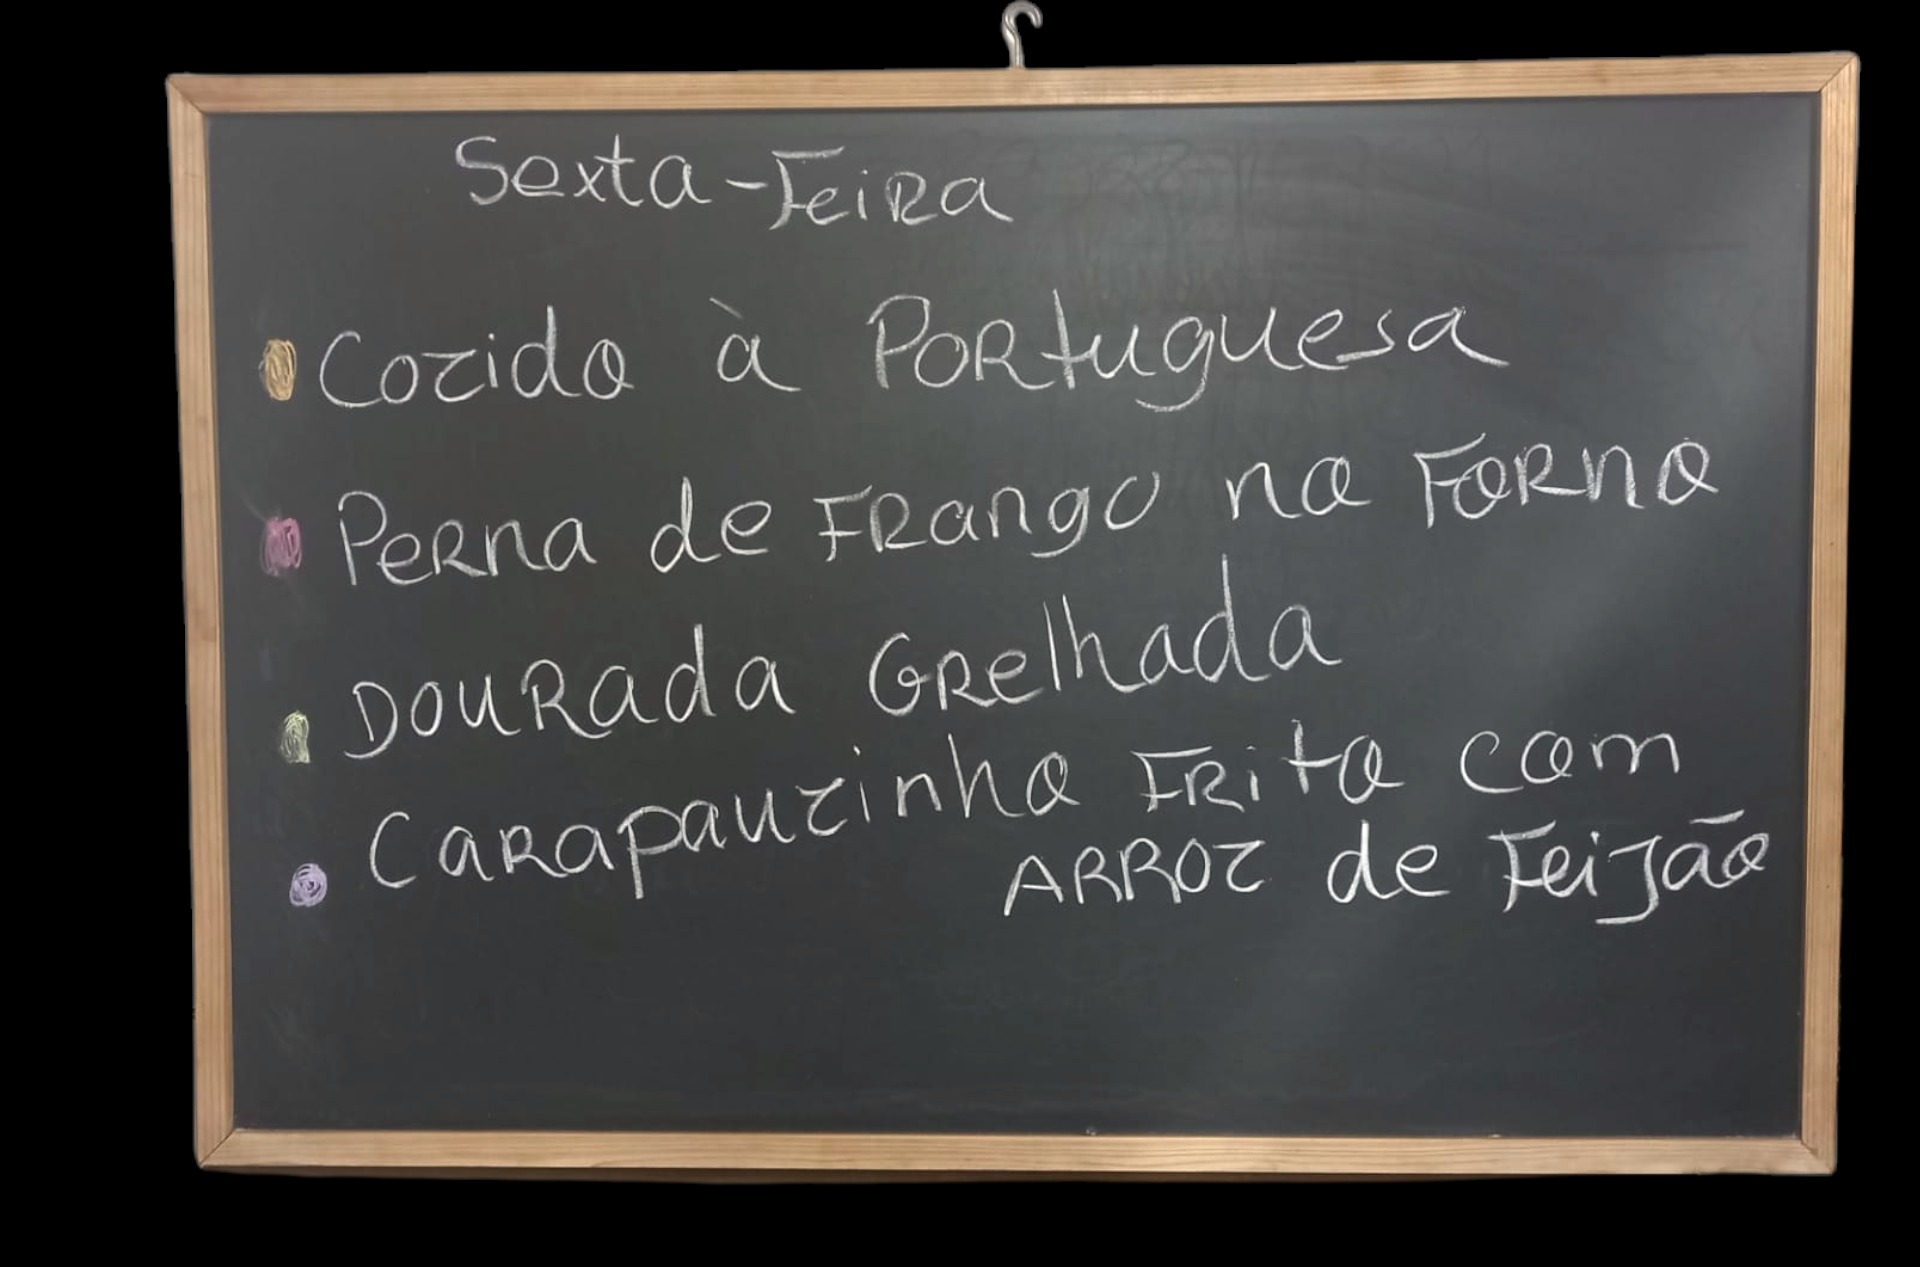 Sexta-Feira
Cozido à Portuguesa
Perna de Frango no Forno
Dourada Grelhada
Carapauzinho Frito com
Arroz de Feijão